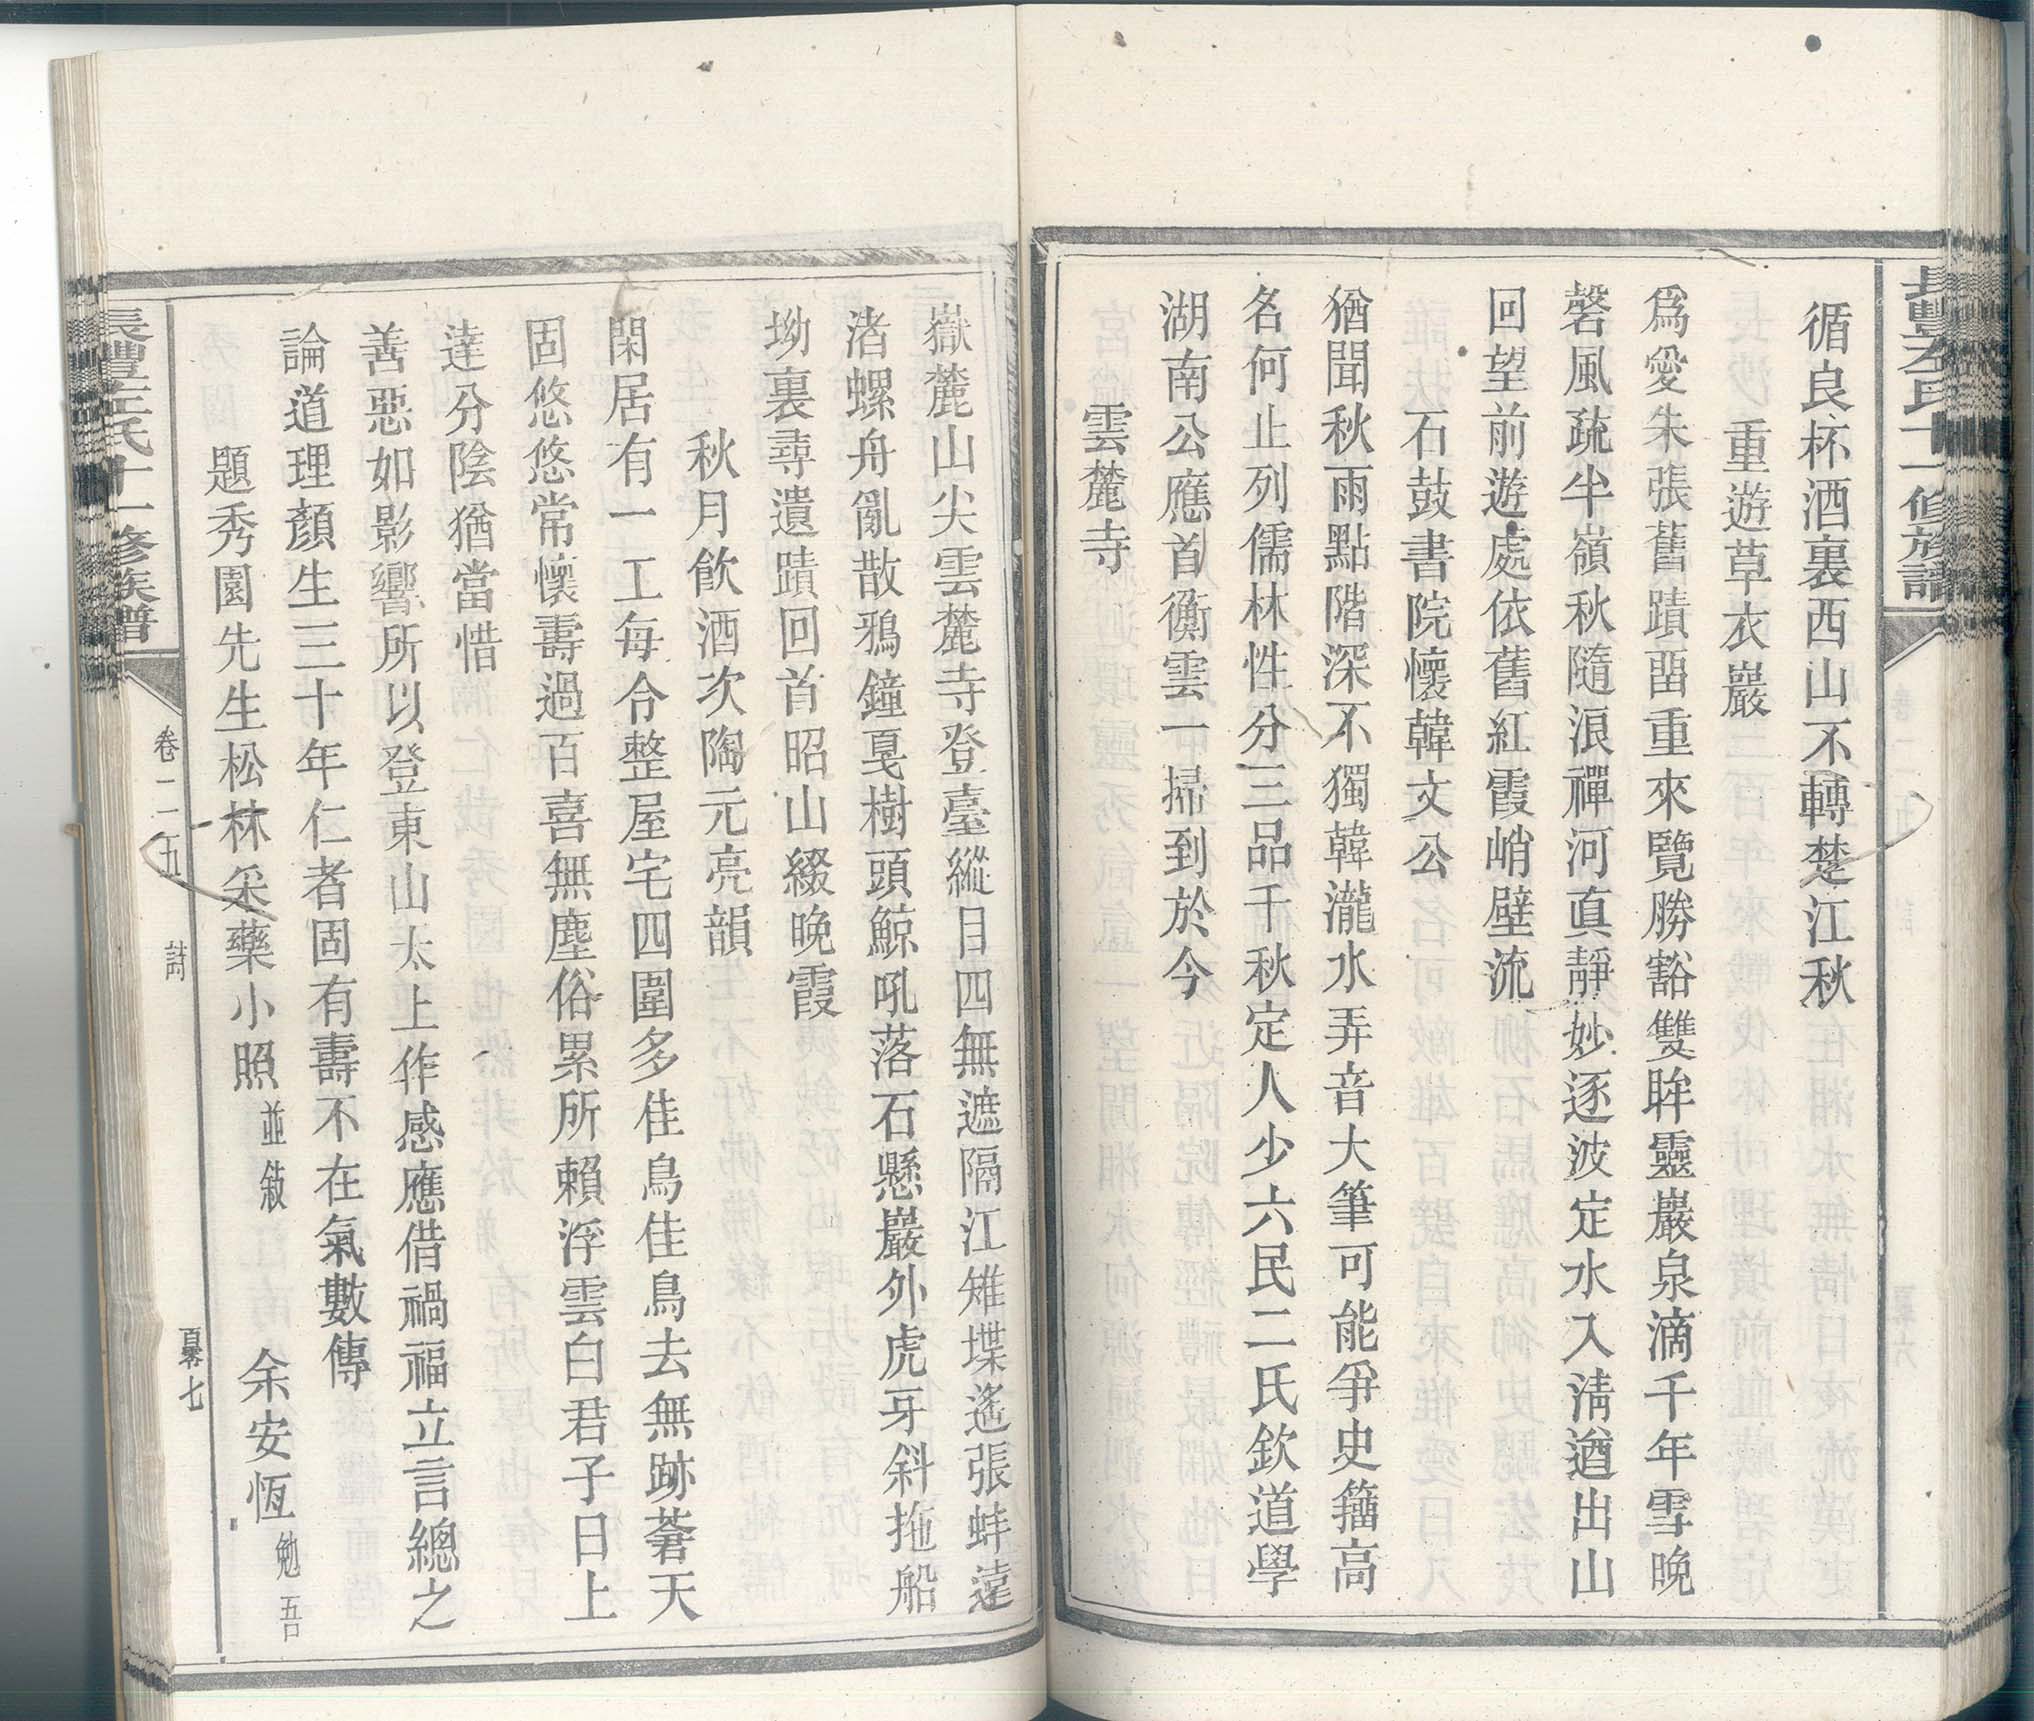 長豐左氏十一修族譜
循良杯酒裏西山不轉楚江秋
重遊草衣巖
爲愛朱張舊蹟畱重來覽勝豁雙眸靈巖泉滴千年雪晚
磬風疏半嶺秋隨浪禪河眞靜妙逐波定水入淸遒出山
回望前遊處依舊紅霞峭壁流
石鼓書院懷韓文公
猶聞秋雨點階深不獨韓瀧水弄音大筆可能爭史籀高
名何止列儒林性分三品千秋定人少六民二氏欽道學
湖南公應首衡雲一掃到於今
雲麓寺
嶽麓山尖雲麓寺登臺縱目四無遮隔江雉堞遙張蚌遠
渚螺舟亂散鴉鐘戛樹頭鯨吼落石懸巖外虎牙斜拖船
坳裏尋遺蹟回首昭山綴晚霞
秋月飲酒次陶元亮韻
閑居有一工每令整屋宅四圍多佳鳥佳鳥去無跡蒼天
固悠悠常懷壽過百喜無塵俗累所賴浮雲白君子日上
達分陰猶當惜
善惡如影響所以登東山太上作感應借禍福立言總之
論道理顏生三十年仁者固有壽不在氣數傳
題秀園先生松林采藥小照 並敍 余安恆 勉吾
長豐左氏十一修族譜 卷二五 詩 百零七